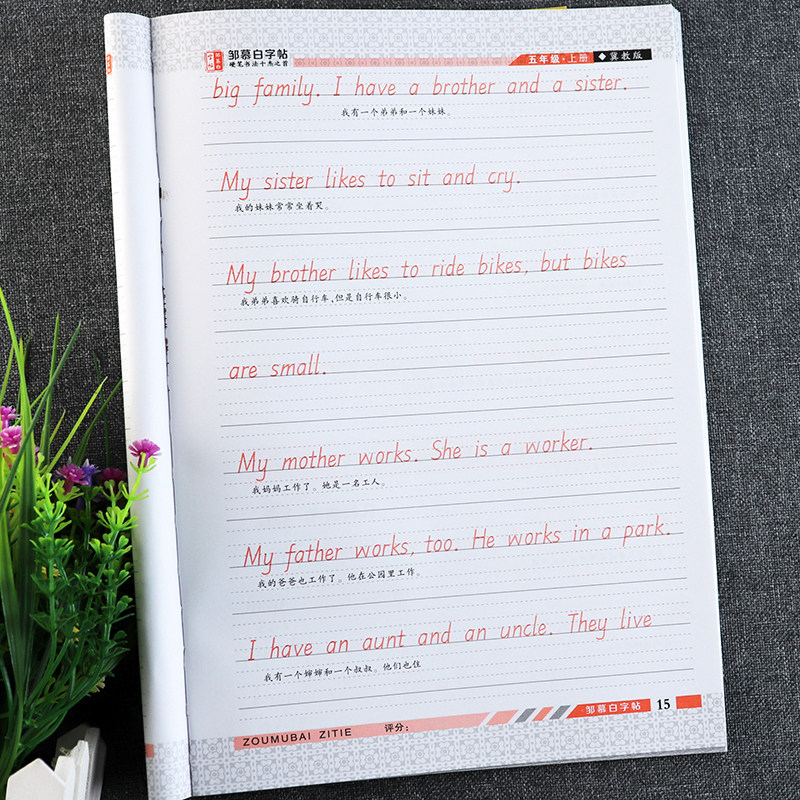 邹慕白字帖
硬笔书法十杰之首
五年级·上册 ◆冀教版
big family. I have a brother and a sister.
我有一个弟弟和一个妹妹。
My sister likes to sit and cry.
我的妹妹常常坐着哭。
My brother likes to ride bikes, but bikes
我弟弟喜欢骑自行车,但是自行车很小。
are small.
My mother works. She is a worker.
我妈妈工作了。她是一名工人。
My father works, too. He works in a park.
我的爸爸也工作了。他在公园里工作。
I have an aunt and an uncle. They live
我有一个婶婶和一个叔叔。他们也住
ZOUMUBAI ZITIE 评分: 邹慕白字帖 15